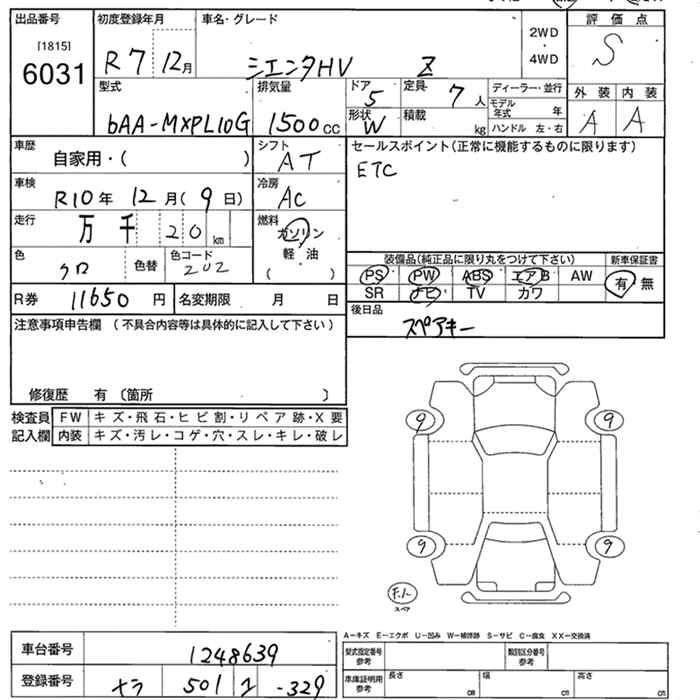 出品番号 初度登録年月 車名・グレード 評価点
[1815] 2WD S
6031 R7 12月 シエンタHV Z 4WD
型式 排気量 ドア 5 定員 7人 ディーラー・並行 外装 内装
モデル年式 年
bAA-MXPL10G 1500cc 形状 W 積載 kg ハンドル 左・右 A A
車歴 シフト セールスポイント(正常に機能するものに限ります)
自家用・( ) AT ETC
車検 冷房
R10年 12月(9日) AC
走行 燃料
万 千 20 km ガソリン
軽・油
色 色替 色コード ( ) 装備品(純正品に限り丸をつけて下さい) 新車保証書
クロ 202 PS PW ABS エアB AW 有・無
R券 11650円 名変期限 月 日 SR ナビ TV カワ
注意事項申告欄 (不具合内容等は具体的に記入して下さい) 後日品
スペアキー
修復歴 有 〔箇所 〕
検査員 FW キズ・飛石・ヒビ割・リペア跡・X要
記入欄 内装 キズ・汚レ・コゲ・穴・スレ・キレ・破レ
9 9
9 9
スペア
A-キズ E-エクボ U-凹み W-補修跡 S-サビ C-腐食 XX-交換済
車台番号 1248639 型式指定番号 参考 類別区分番号 参考
登録番号 ナラ 501 -329 車庫証明用 参考 長さ cm 幅 cm 高さ cm